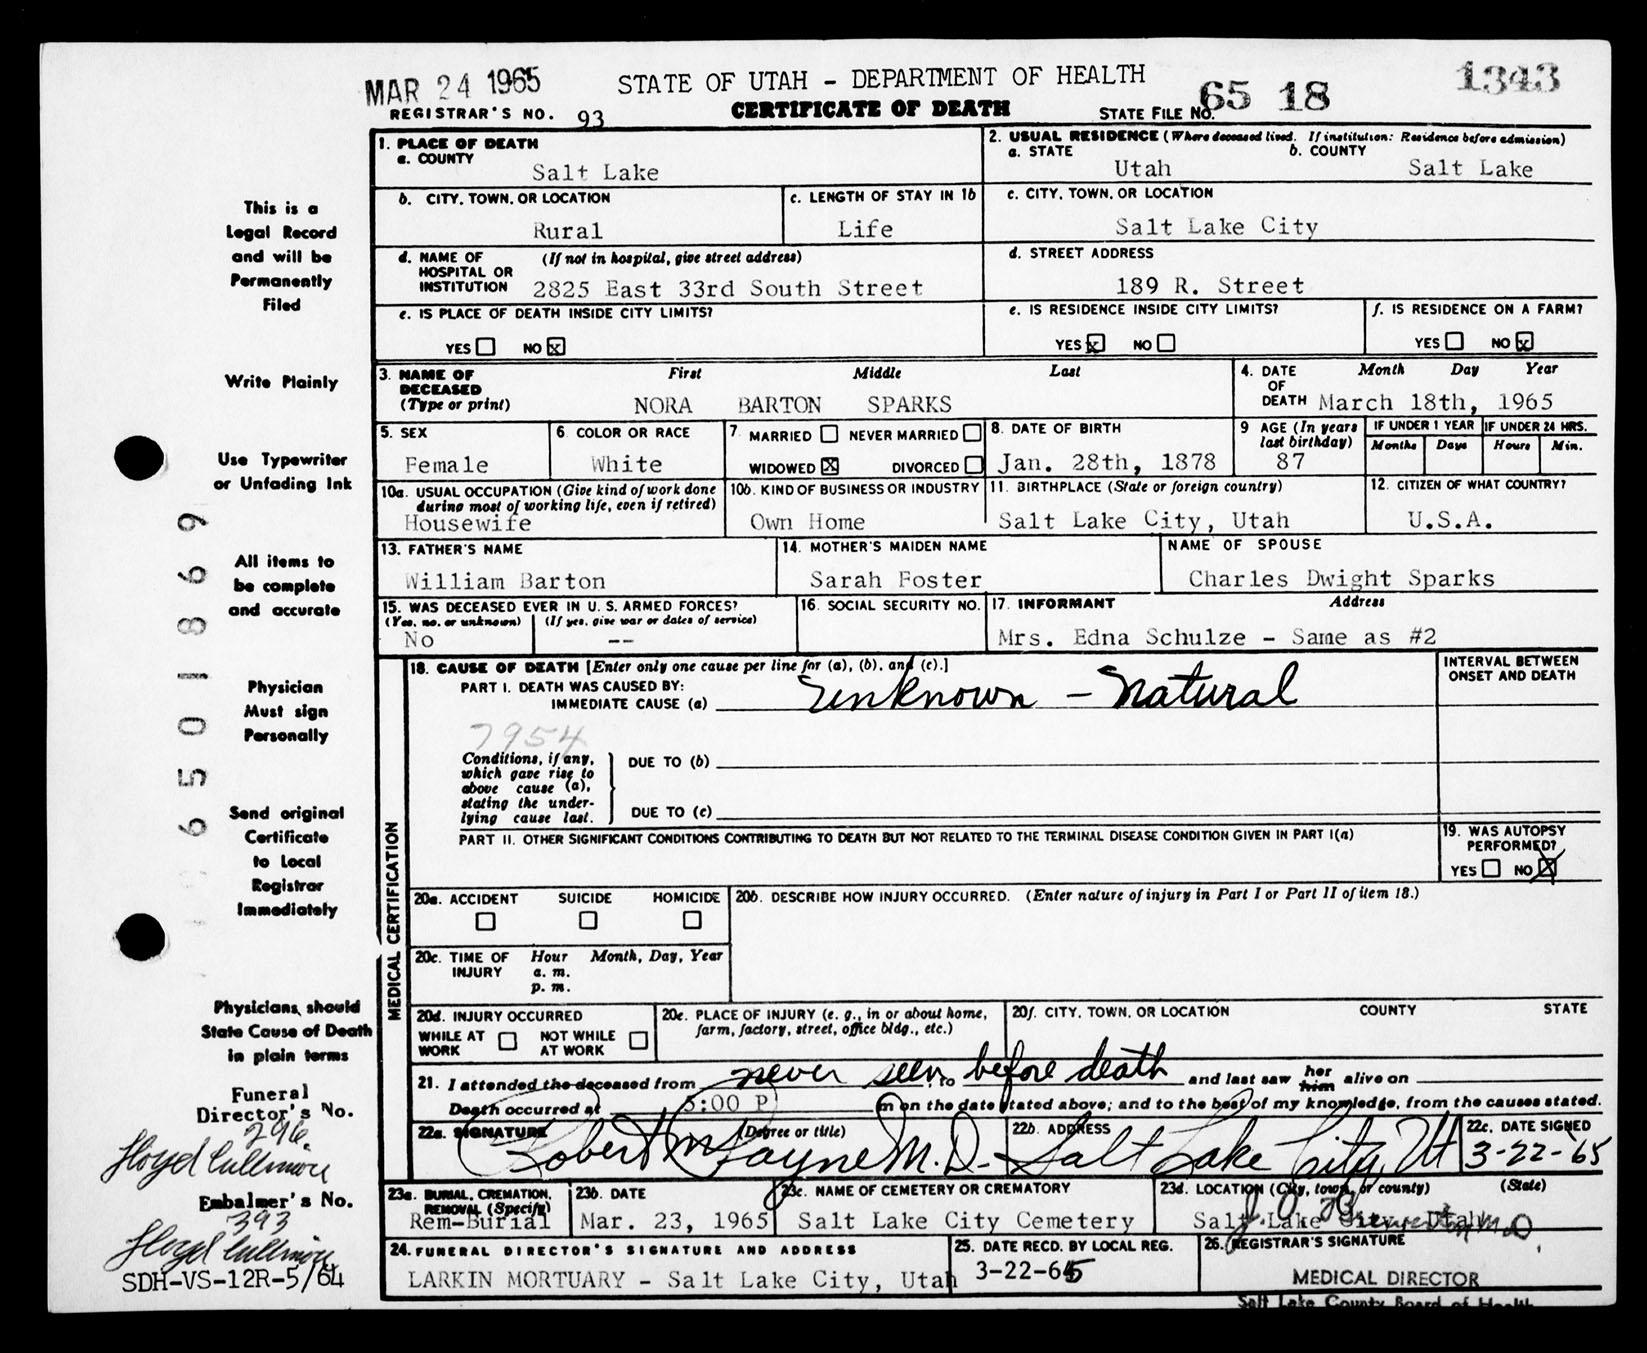 MAR 24 1965 STATE OF UTAH - DEPARTMENT OF HEALTH 65 18 1343
REGISTRAR'S NO. 93 CERTIFICATE OF DEATH STATE FILE NO.
1. PLACE OF DEATH
a. COUNTY
Salt Lake
2. USUAL RESIDENCE (Where deceased lived. If institution: Residence before admission)
a. STATE b. COUNTY
Utah Salt Lake
b. CITY, TOWN, OR LOCATION
Rural
c. LENGTH OF STAY IN 1b
Life
c. CITY, TOWN, OR LOCATION
Salt Lake City
d. NAME OF HOSPITAL OR INSTITUTION (If not in hospital, give street address)
2825 East 33rd South Street
d. STREET ADDRESS
189 R. Street
e. IS PLACE OF DEATH INSIDE CITY LIMITS?
YES NO x
e. IS RESIDENCE INSIDE CITY LIMITS?
YES x NO
f. IS RESIDENCE ON A FARM?
YES NO x
3. NAME OF DECEASED (Type or print)
First Middle Last
NORA BARTON SPARKS
4. DATE OF DEATH Month Day Year
March 18th, 1965
5. SEX
Female
6. COLOR OR RACE
White
7. MARRIED NEVER MARRIED
WIDOWED x DIVORCED
8. DATE OF BIRTH
Jan. 28th, 1878
9 AGE (In years last birthday)
87
IF UNDER 1 YEAR
Months Days
IF UNDER 24 HRS.
Hours Min.
10a. USUAL OCCUPATION (Give kind of work done during most of working life, even if retired)
Housewife
10b. KIND OF BUSINESS OR INDUSTRY
Own Home
11. BIRTHPLACE (State or foreign country)
Salt Lake City, Utah
12. CITIZEN OF WHAT COUNTRY?
U.S.A.
13. FATHER'S NAME
William Barton
14. MOTHER'S MAIDEN NAME
Sarah Foster
NAME OF SPOUSE
Charles Dwight Sparks
15. WAS DECEASED EVER IN U. S. ARMED FORCES?
(Yes, no, or unknown) (If yes, give war or dates of service)
No --
16. SOCIAL SECURITY NO.
17. INFORMANT Address
Mrs. Edna Schulze - Same as #2
MEDICAL CERTIFICATION
18. CAUSE OF DEATH [Enter only one cause per line for (a), (b), and (c).]
PART I. DEATH WAS CAUSED BY:
IMMEDIATE CAUSE (a) Unknown - Natural
INTERVAL BETWEEN ONSET AND DEATH
7954
Conditions, if any, which gave rise to above cause (a), stating the underlying cause last.
DUE TO (b)
DUE TO (c)
PART II. OTHER SIGNIFICANT CONDITIONS CONTRIBUTING TO DEATH BUT NOT RELATED TO THE TERMINAL DISEASE CONDITION GIVEN IN PART I(a)
19. WAS AUTOPSY PERFORMED?
YES NO X
20a. ACCIDENT SUICIDE HOMICIDE
20b. DESCRIBE HOW INJURY OCCURRED. (Enter nature of injury in Part I or Part II of item 18.)
20c. TIME OF INJURY Hour Month, Day, Year
a. m.
p. m.
20d. INJURY OCCURRED
WHILE AT WORK NOT WHILE AT WORK
20e. PLACE OF INJURY (e. g., in or about home, farm, factory, street, office bldg., etc.)
20f. CITY, TOWN, OR LOCATION COUNTY STATE
21. I attended the deceased from never seen, to before death and last saw her him alive on
Death occurred at 5:00 P m on the date stated above; and to the best of my knowledge, from the causes stated.
22a. SIGNATURE (Degree or title)
Robert M Rayne M.D.
22b. ADDRESS
Salt Lake City, Ut
22c. DATE SIGNED
3-22-65
23a. BURIAL, CREMATION, REMOVAL (Specify)
Rem-Burial
23b. DATE
Mar. 23, 1965
23c. NAME OF CEMETERY OR CREMATORY
Salt Lake City Cemetery
23d. LOCATION (City, town, or county) (State)
Salt Lake City, Utah
24. FUNERAL DIRECTOR'S SIGNATURE AND ADDRESS
LARKIN MORTUARY - Salt Lake City, Utah
25. DATE RECD. BY LOCAL REG.
3-22-65
26. REGISTRAR'S SIGNATURE
MEDICAL DIRECTOR
Salt Lake County Board of Health
This is a
Legal Record
and will be
Permanently
Filed
Write Plainly
Use Typewriter
or Unfading Ink
All items to
be complete
and accurate
Physician
Must sign
Personally
Send original
Certificate
to Local
Registrar
Immediately
Physicians should
State Cause of Death
in plain terms
Funeral
Director's No.
296
Floyd Cullimore
Embalmer's No.
393
Floyd Cullimore
SDH-VS-12R-5/64
6501869